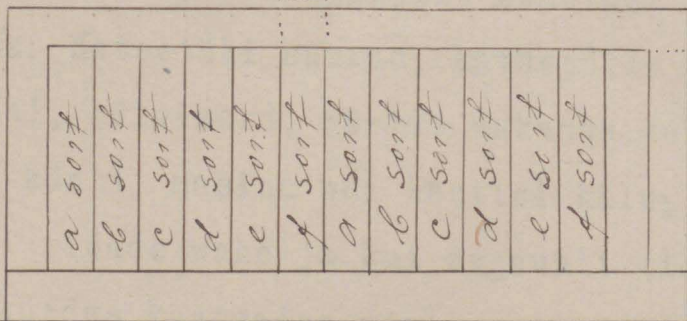 a sort
b sort
c sort
d sort
e sort
f sort
a sort
b sort
c sort
d sort
e sort
f sort